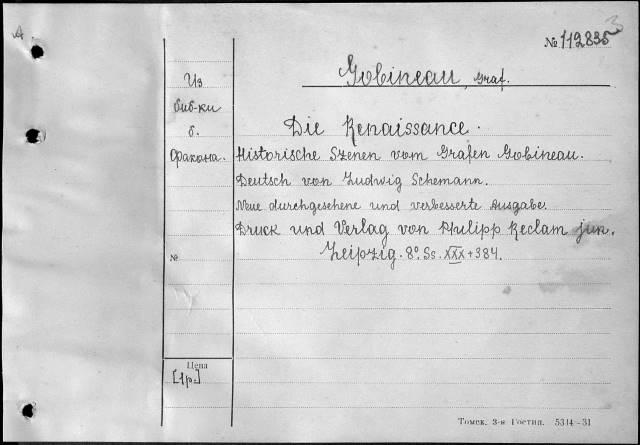 A
3
№ 112835
Gobineau, Graf.
Из
биб-ки
б.
Фракона.
Die Renaissance.
Historische Szenen vom Grafen Gobineau.
Deutsch von Ludwig Schemann.
Neue durchgesehene und verbesserte Ausgabe.
Druck und Verlag von Philipp Reclam jun.
№
Leipzig. 8° Ss. XXX + 384.
Цена
[1р.]
Томск. 3-я Гостип. 5314—31